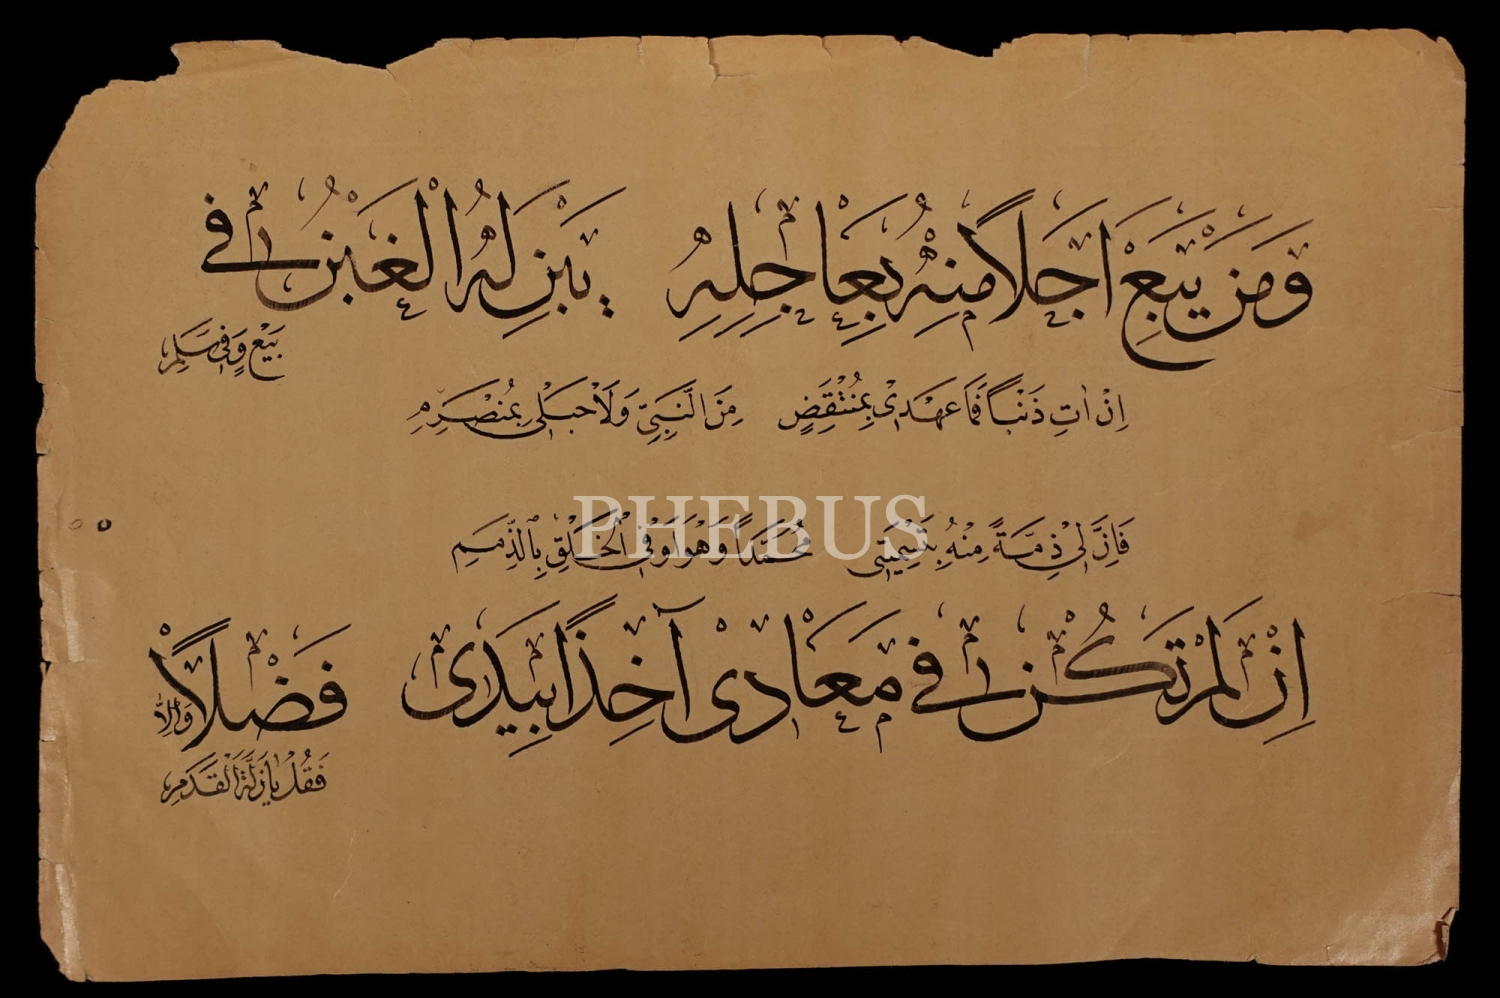 وَمَنْ يَبِعْ اٰجِلاً مِنْهُ بِعَاجِلِهِ يَبِنْ لَهُ الْغَبْنُ فِى
بَيْعٍ وَفِى سَلَمِ
اِنْ اٰتِ ذَنْباً فَمَا عَهْدِىْ بِمُنْتَقِضٍ مِنَ النَّبِىِّ وَلَاحَبْلِى بِمُنْصَرِمِ
PHEBUS
فَاِنَّ لِىْ ذِمَّةً مِنْهُ بِتَسْمِيَتِى مُحَمَّداً وَهْوَ اَوْفَى الْخَلْقِ بِالذِّمَمِ
اِنْ لَمْ تَكُنْ فِى مَعَادِىْ آخِذاً بِيَدِىْ فَضْلاً وَاِلاَّ
فَقُلْ يَازَلَّةَ الْقَدَمِ